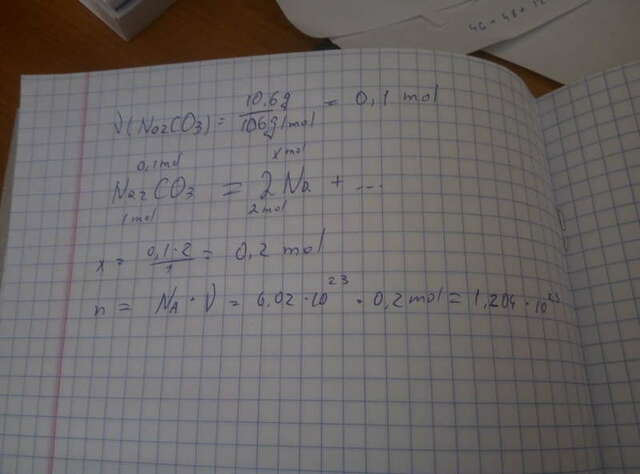 46 + 48 + 12
ν(Na2CO3) = 10,6g / 106g/mol = 0,1 mol
0,1mol x mol
Na2CO3 = 2Na + ...
1mol 2mol
x = 0,1·2 / 1 = 0,2 mol
n = NA · ν = 6,02 · 10^23 · 0,2 mol = 1,204 · 10^23